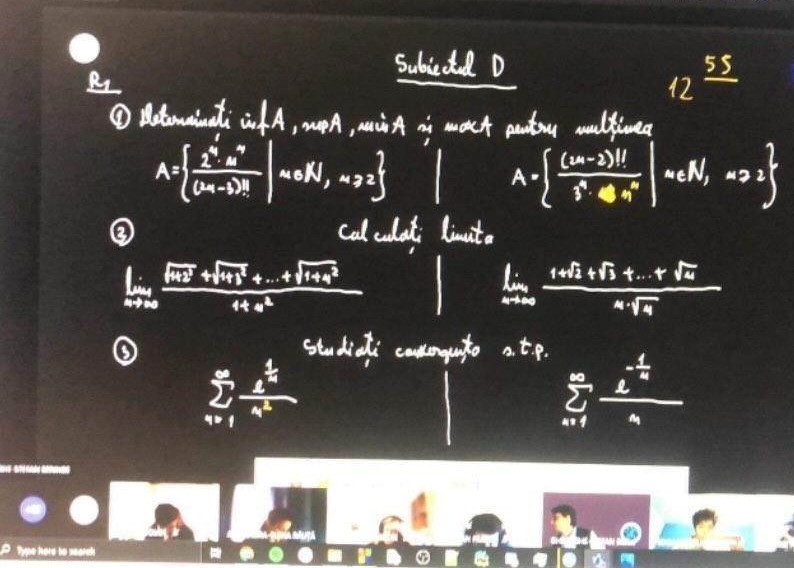 Subiectul D
12 55
R1
① Determinați inf A, sup A, min A și max A pentru mulțimea
A = { 2^n · n^n / (2n-3)!! | n ∈ N, n ≥ 2 } | A = { (2n-2)!! / 3^n · n^n | n ∈ N, n ≥ 2 }
② Calculați limita
lim n→∞ (√1+2² + √1+3² + ... + √1+n²) / (1+n²) | lim n→∞ (1+√2+√3+...+√n) / (n·√n)
③ Studiați convergența s.t.p.
∑ n=1 ∞ e^(1/n) / n² | ∑ n=1 ∞ e^(-1/n) / n
Type here to search